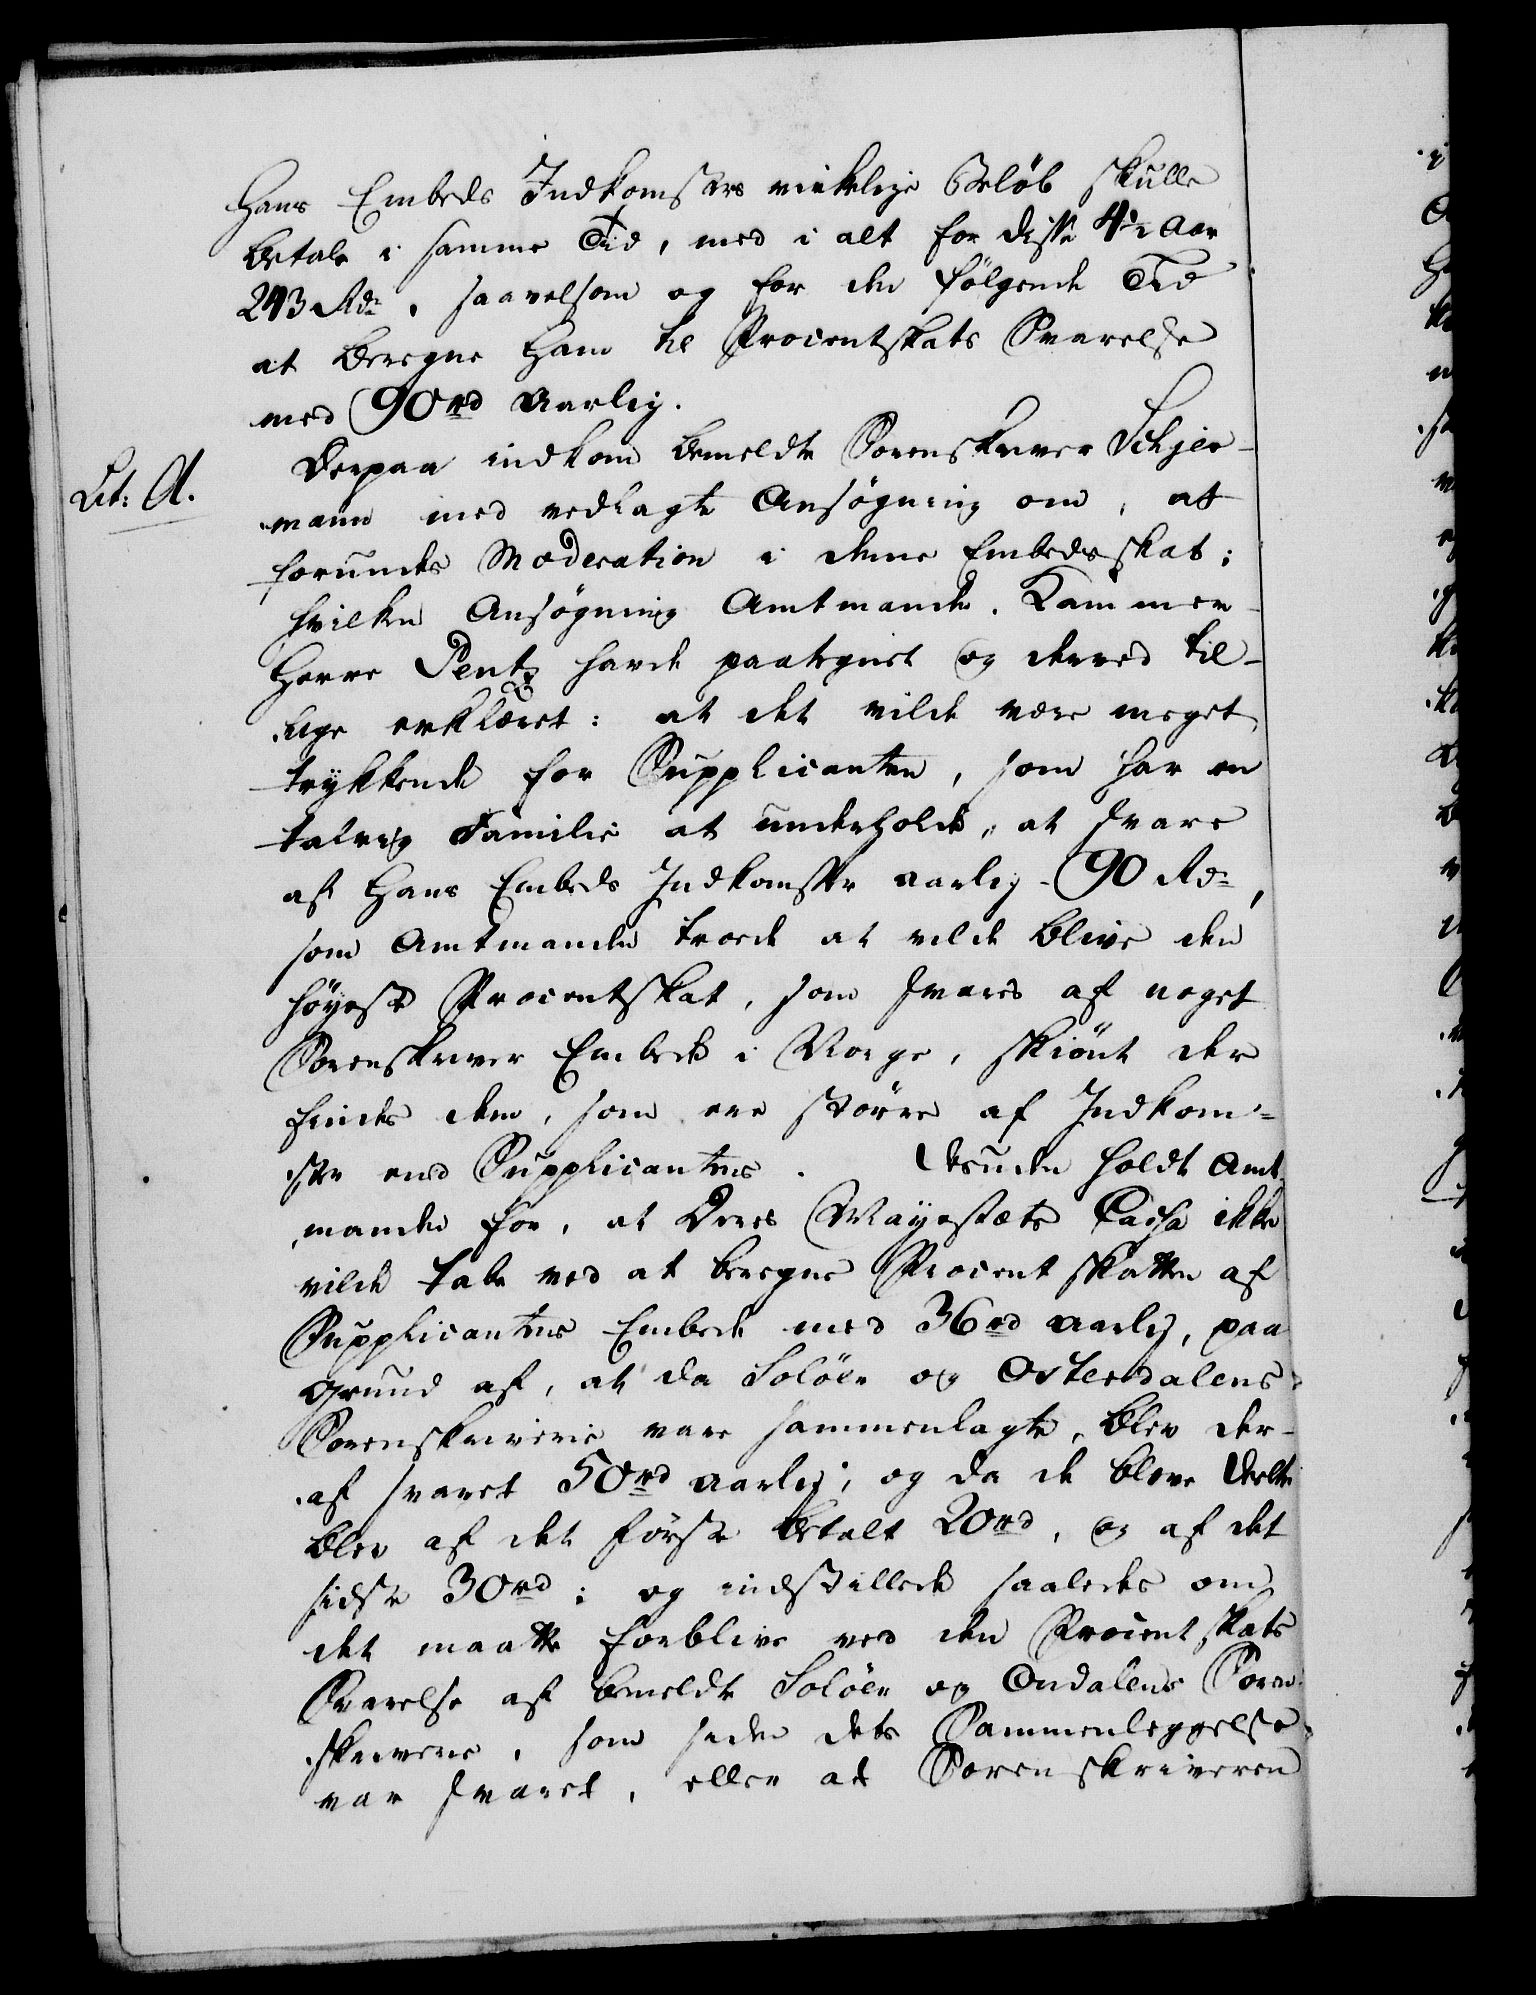 Hans Embeds Indkomsters virkelige Beløb skulle
betale i samme Tid, med i alt for disse 4½ Aar
243 Rd., saavelsom og for den følgende Tid
at beregne ham til Procentskats Svarelse
med 90 rd aarlig.
Derpaa indkom bemeldte Sorenskriver Schjer-
Lit: A.
mann med vedlagte Ansøgning om, at
forundes Moderation i denne Embedsskat;
hvilken Ansøgning Amtmanden, Kammer-
Herre Pentz havde paategnet og derved til-
lige erklæret: at det vilde være meget
trykkende for Supplicanten, som har en
talrig Familie at underholde, at svare
af Hans Embeds Indkomster aarlig 90 Rd.,
som Amtmanden troede at vilde blive den
høyeste Procentskat, som svares af noget
Sorenskriver Embede i Norge, skiønt der
findes dem, som ere større af Indkom-
ster end Supplicantens. Desuden holdt Amt-
manden for, at Deres Mayestæts Cassa ikke
vilde tabe ved at beregne Procent skatten af
Supplicantens Embede med 36 rd aarlig, paa
Grund af, at da Soløer og Osterdalens
Sorenskriverie vare sammenlagte, blev der-
af svaret 50 rd aarlig; og da de bleve deelte
blev af det første betalt 20 rd, og af det
sidste 30 rd; og indstillede saaledes om
det maatte forblive ved den Procent skats
Svarelse af bemeldte Soløer og Oudalens Soren-
skriverie, som siden dets Sammenleggelse
var svaret, eller at Sorenskriveren